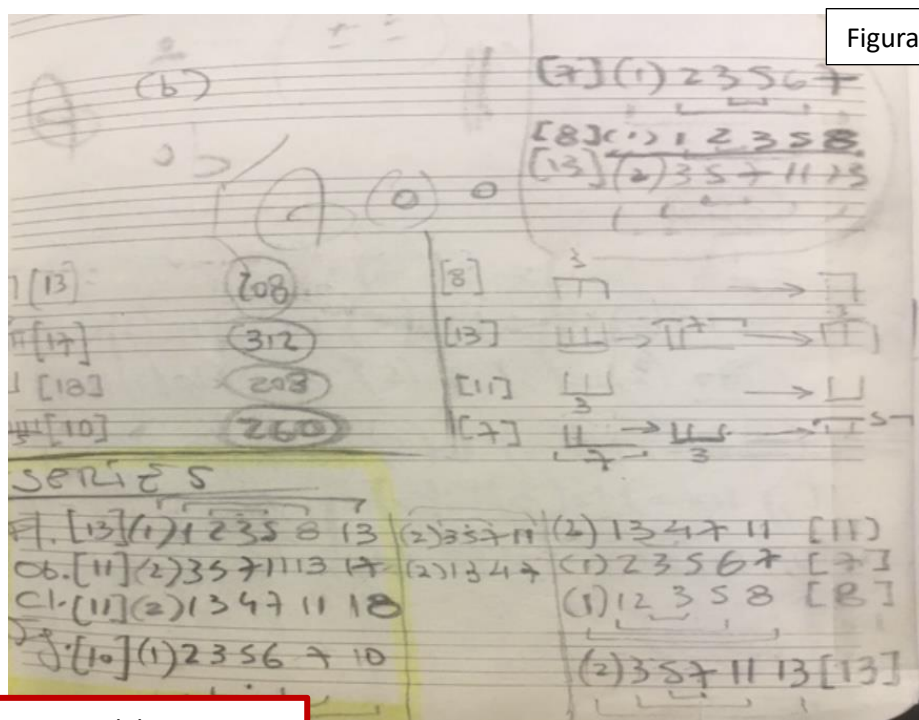 Figura
(b)
[7] (1) 2 3 5 6 7
[8] (1) 1 2 3 5 8
[13] (2) 3 5 7 11 13
[13] 208 [8] 3
[17] 312 [13] 7 3
[18] 208 [11] 3
[10] 260 [7] 7 3 5
SERIES
Fl. [13] (1) 1 2 3 5 8 13 (2) 3 5 7 11 (2) 1 3 4 7 11 [11]
Ob. [11] (2) 3 5 7 11 13 17 (2) 1 3 4 7 (1) 2 3 5 6 7 [7]
Cl. [11] (2) 1 3 4 7 11 18 (1) 1 2 3 5 8 [8]
Fg. [10] (1) 2 3 5 6 7 10 (2) 3 5 7 11 13 [13]